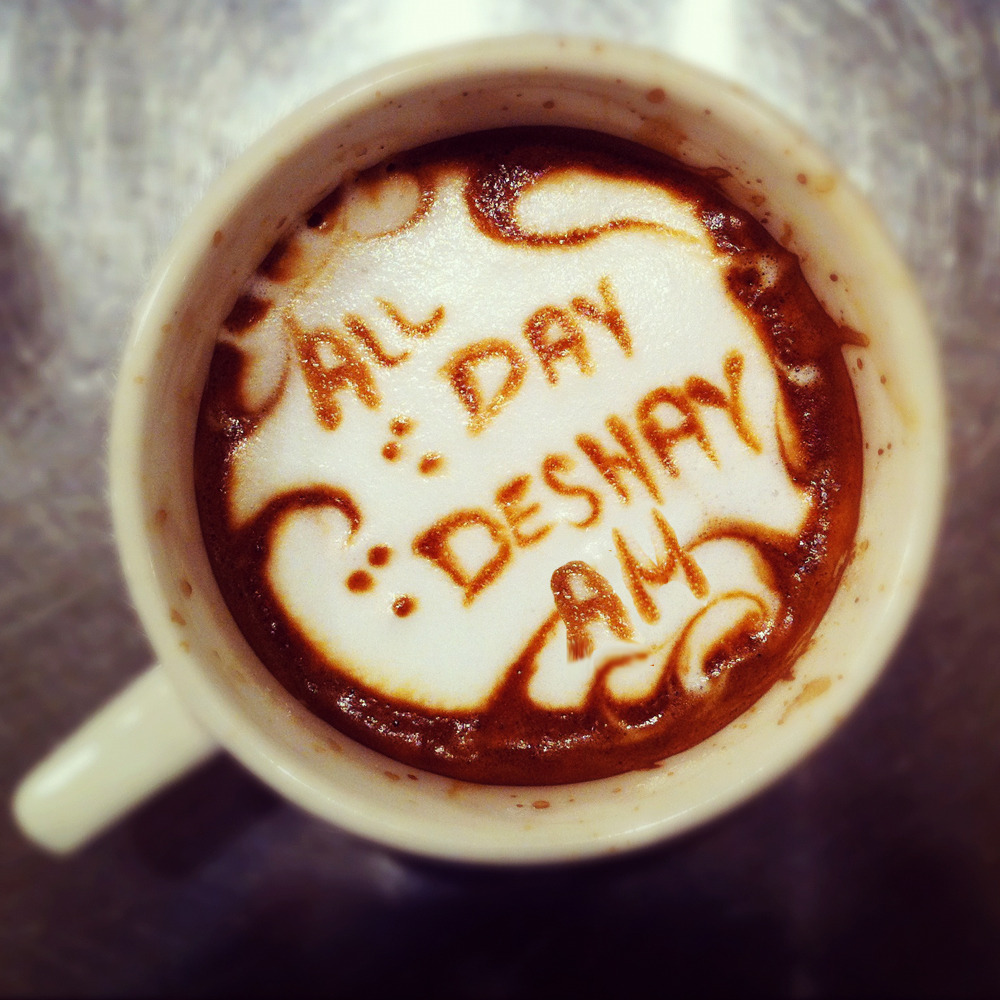 ALL DAY
DESNAY
AM